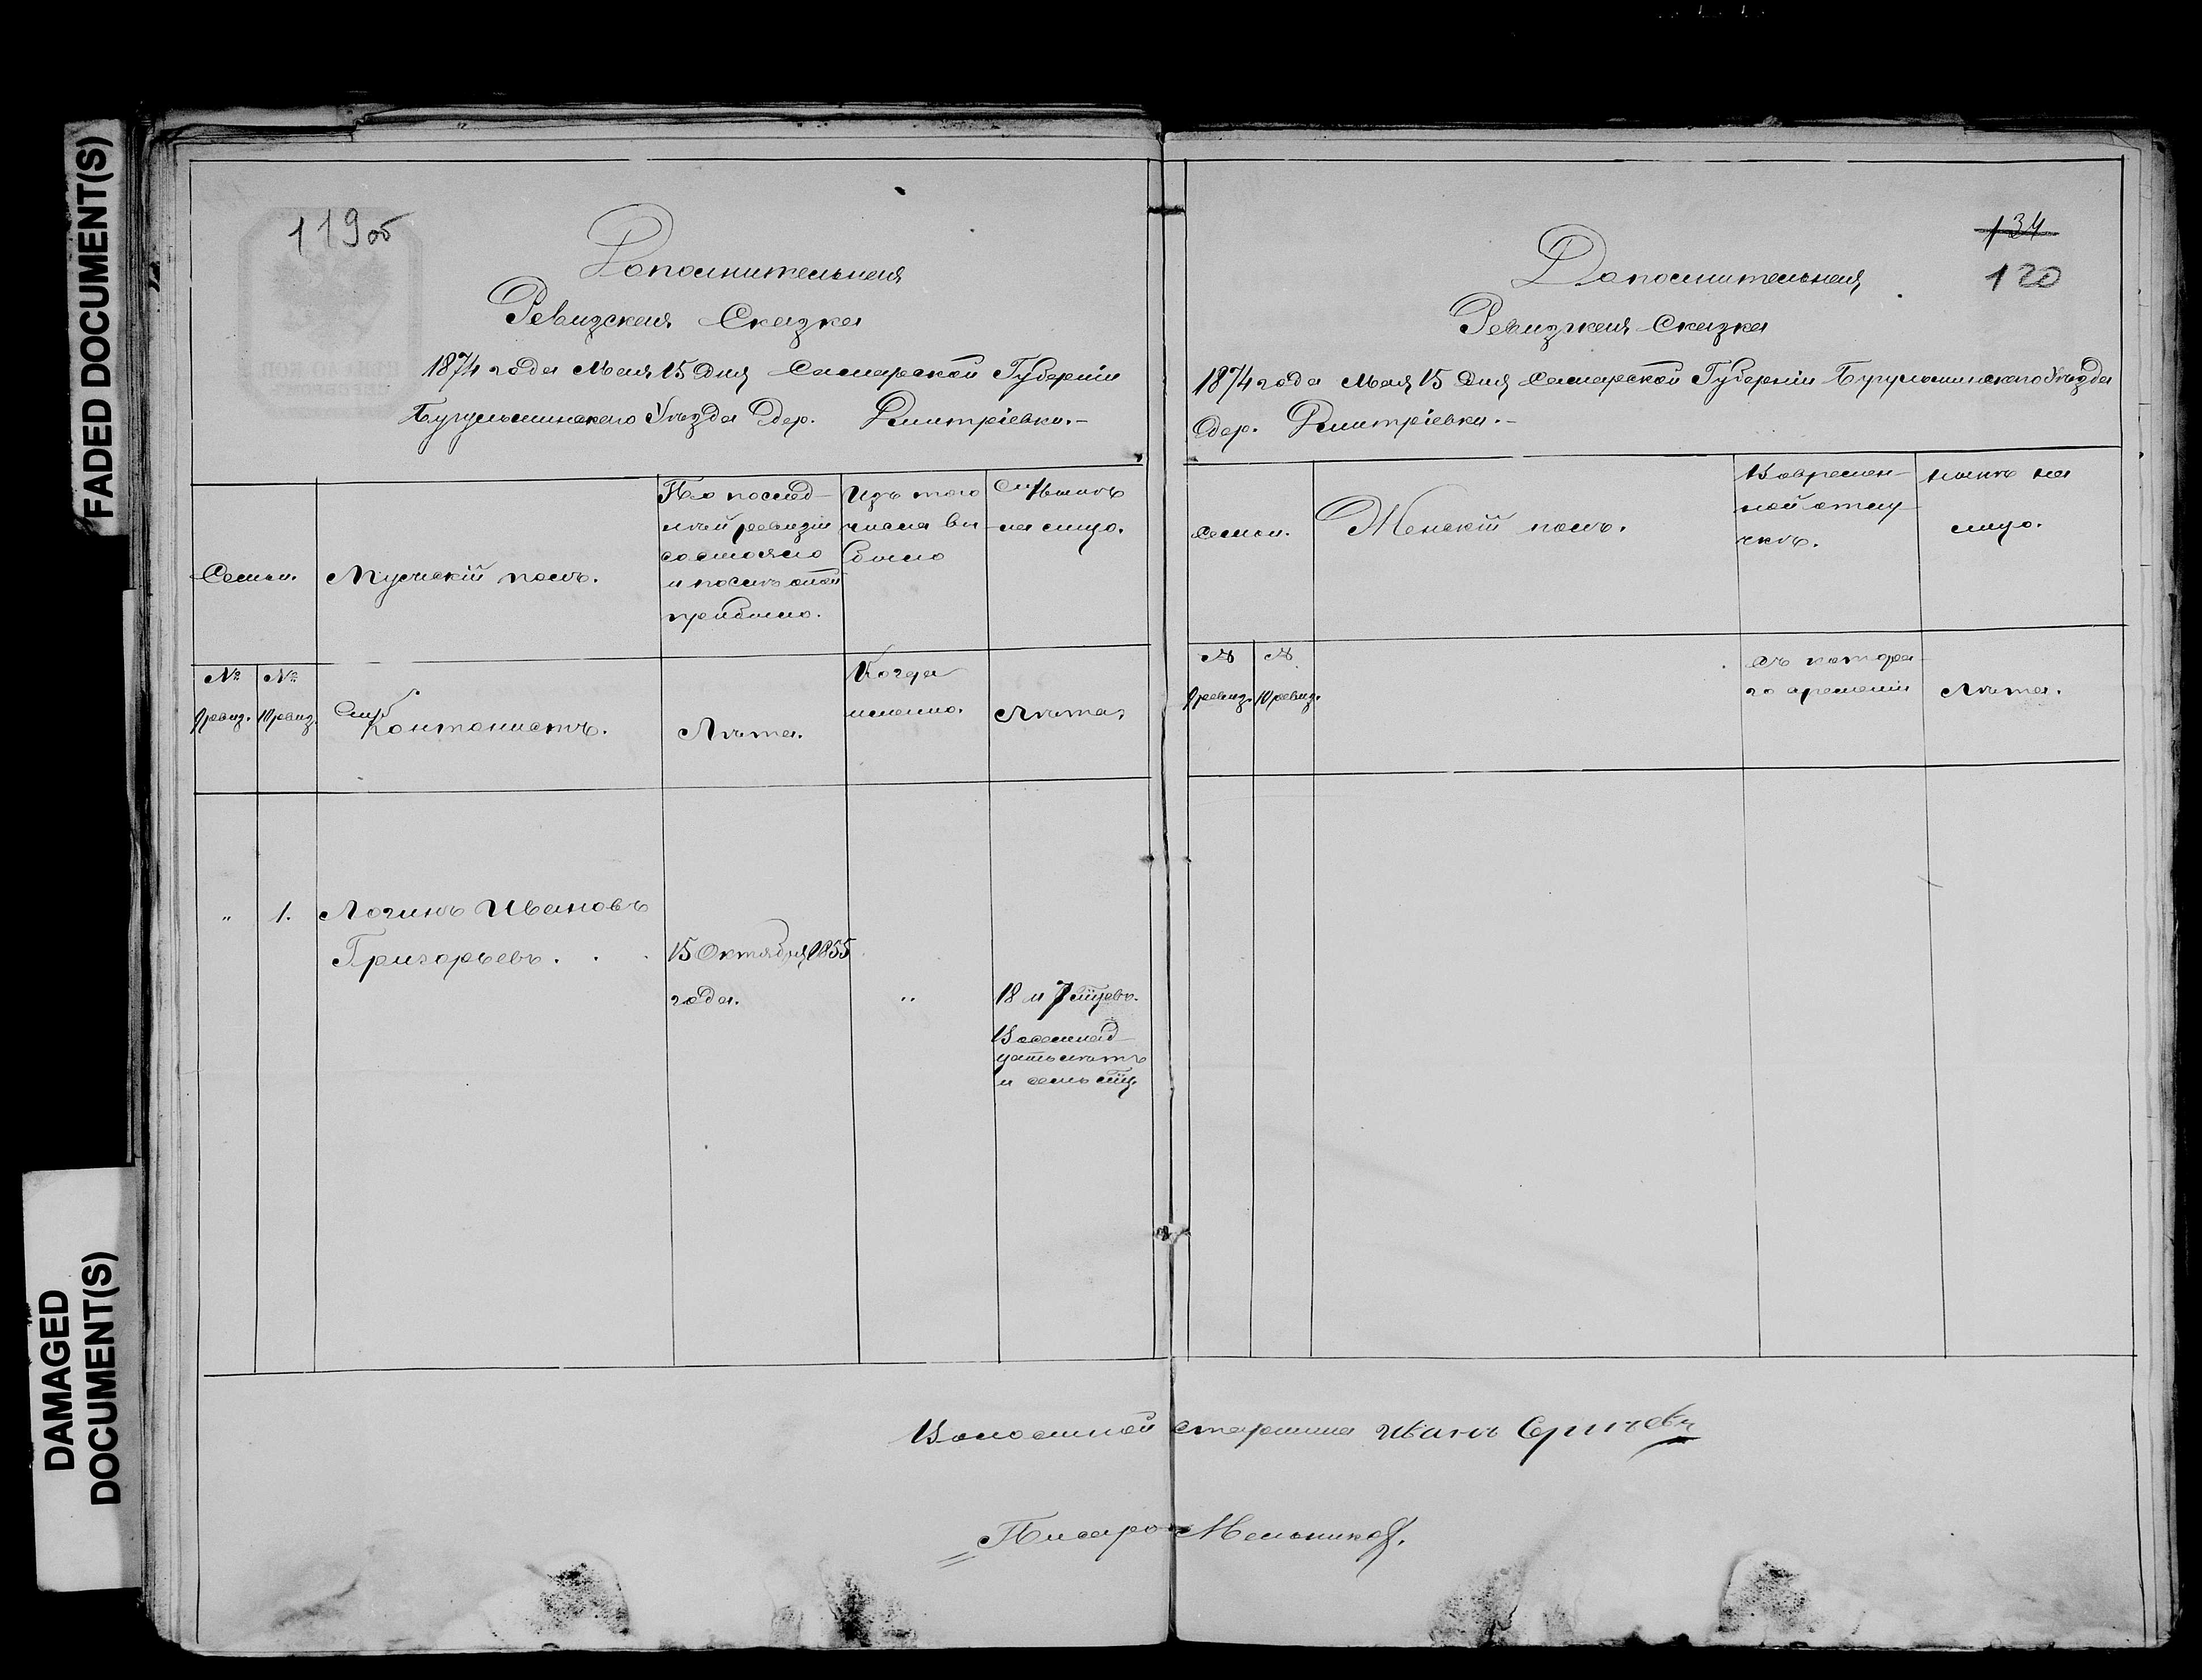 FADED DOCUMENT(S)
DAMAGED
DOCUMENT(S)
119об
Дополнительная
Ревизская Сказка
1874 года Мая 15 дня Самарской Губернiи
Бугульминскаго Уѣзда дер. Дмитрiевки.-
Семьи.
Мужескiй полъ.
По послѣд-
нѣй ревизiи
состояло
и послѣ оной
прибыло.
Изъ того
числа вы
было
Нынѣ
на лицо.
№ №
9 ревиз. 10 ревиз.
Кантонистъ.
Лѣта.
Когда
именно.
Лѣта.
" 1. Логинъ Ивановъ
Григорьевъ . . . 15 Октября 1855
года. " 18 и 7 мцевъ.
Восемнад-
цать лѣтъ
и семь мц.
134
120
Дополнительная
Ревизская Сказка
1874 года Мая 15 дня Самарской Губернiи Бугульминскаго Уѣзда
дер. Дмитрiевки.-
Семьи.
Женскiй полъ.
Во времен-
ной отлу-
чкѣ.
нынѣ на
лицо.
№ №
9 ревиз. 10 ревиз.
съ котора-
го времени
Лѣта.
Волостной Старшина Иванъ
Писарь Мельниковъ.